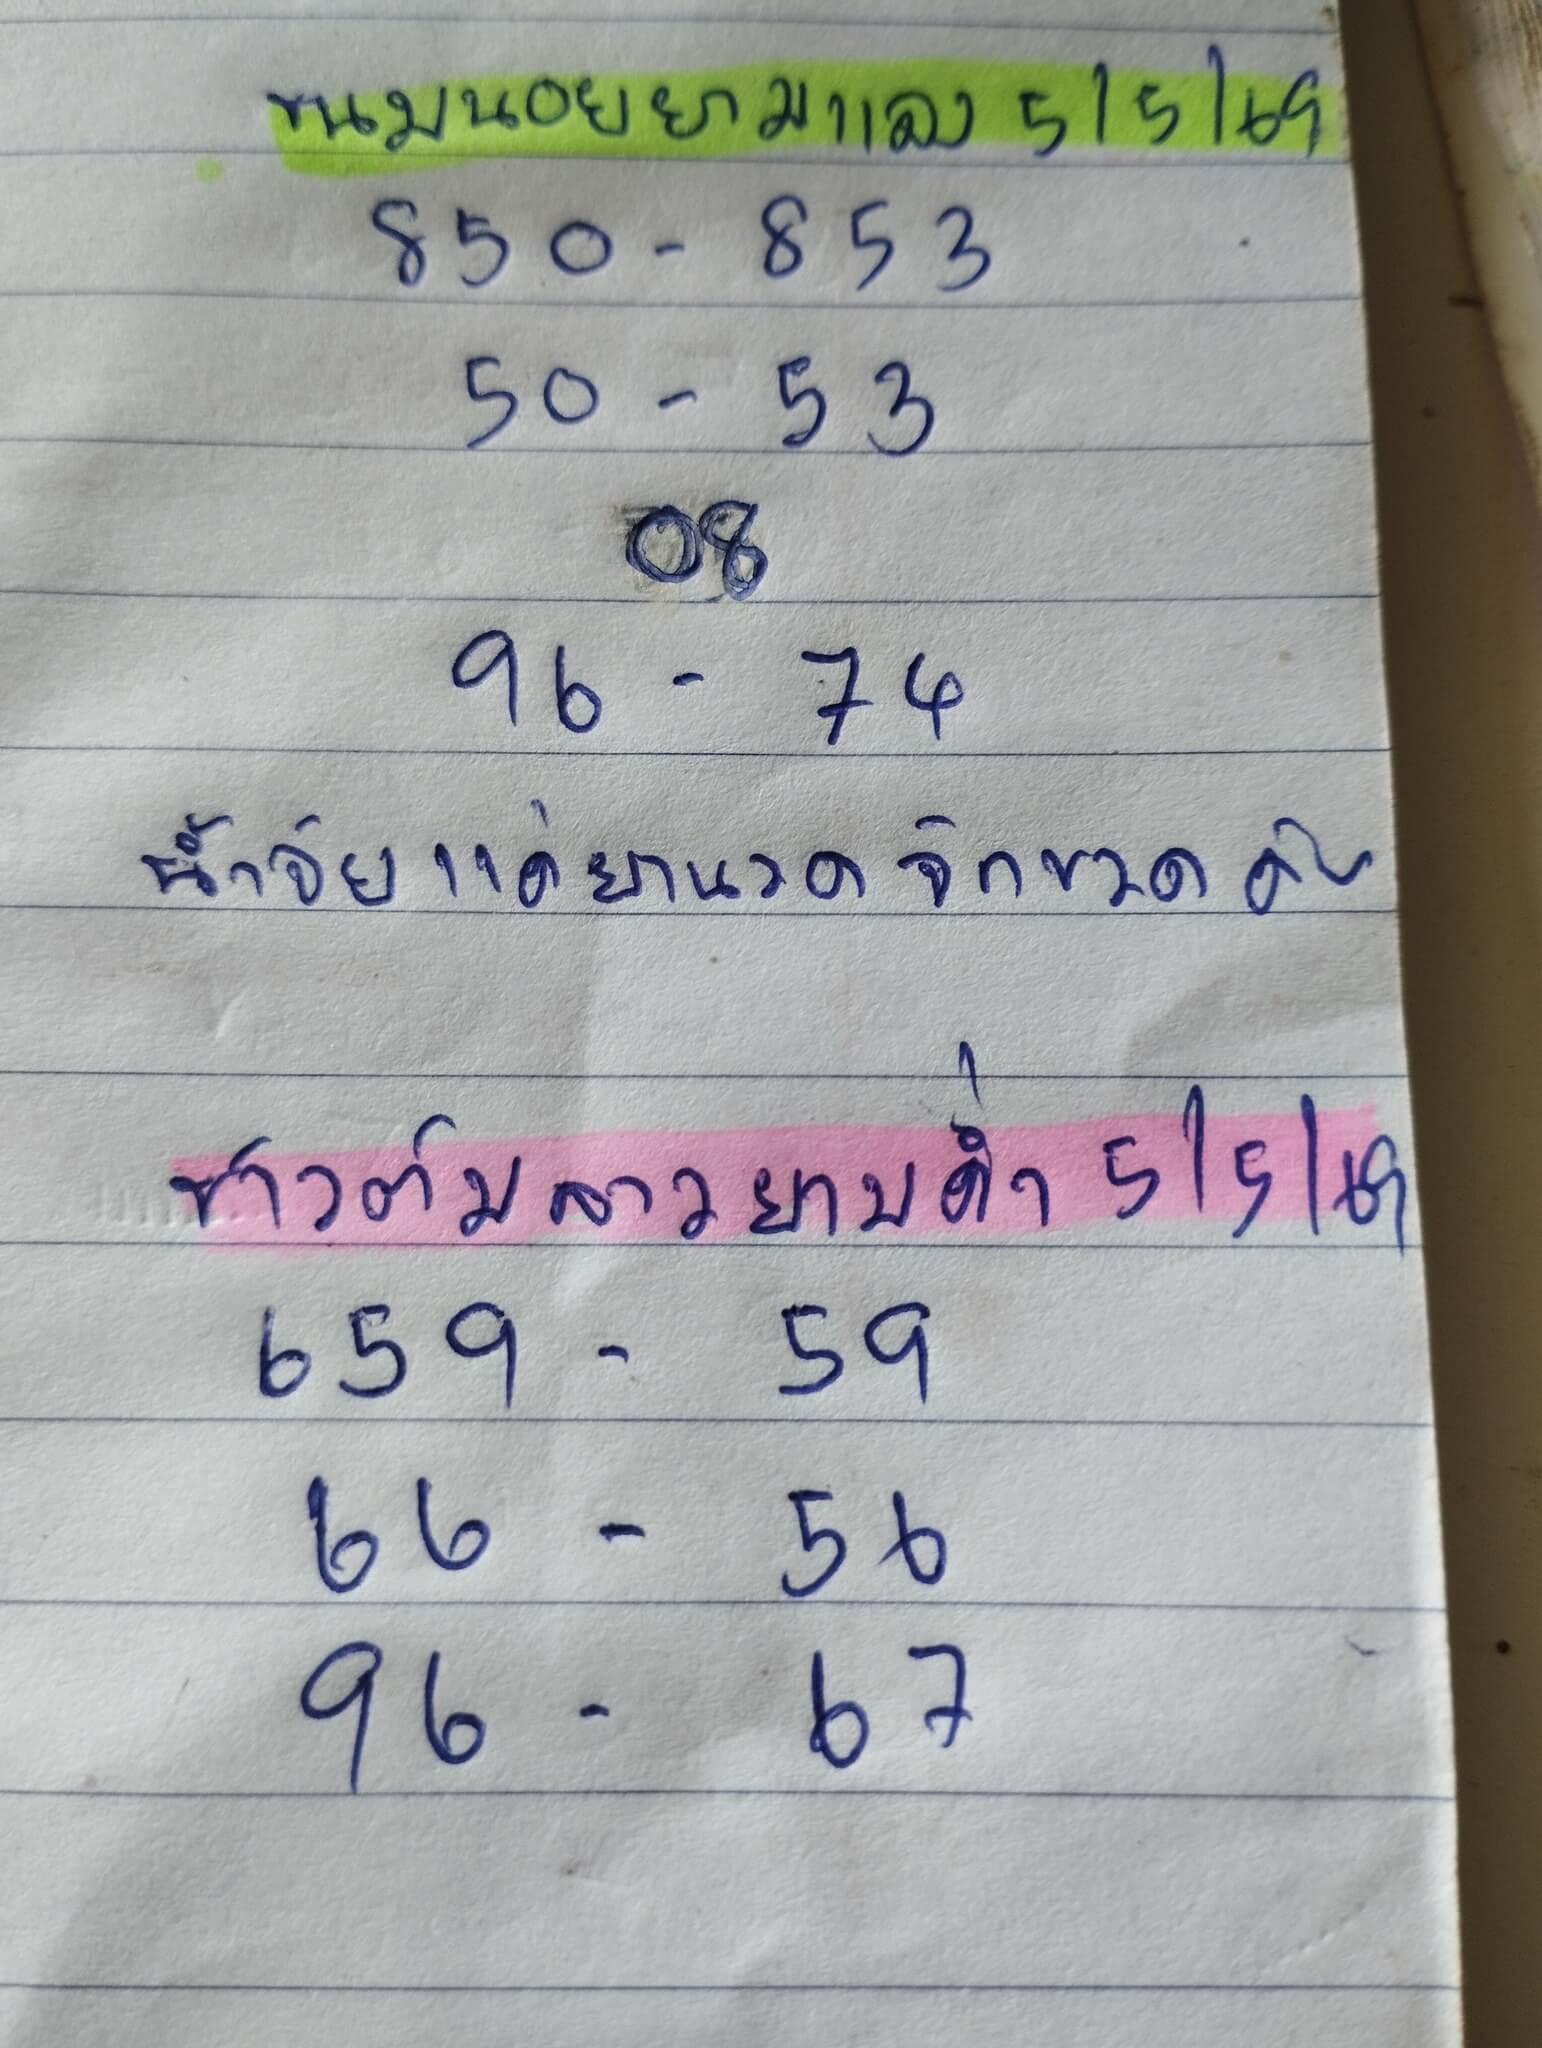 ขนมนอยยามแลง 5/5/69
850 - 853
50 - 53
08
96 - 74
น้ำจัยแค่ยานวดจักขวดคับ
ข้าวต้มลาวยามค่ำ 5/5/69
659 - 59
66 - 56
96 - 67